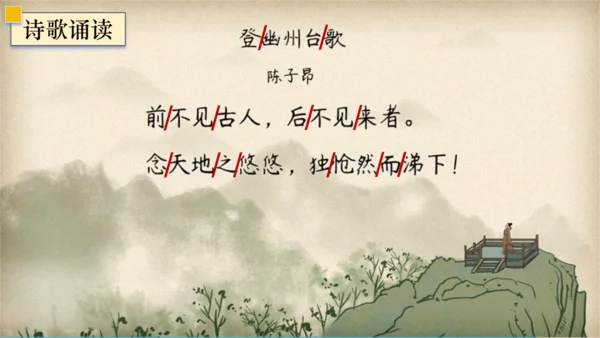 诗歌诵读
登/幽州台/歌
陈子昂
前/不见/古人，后/不见/来者。
念/天地/之/悠悠，独/怆然/而/涕下！